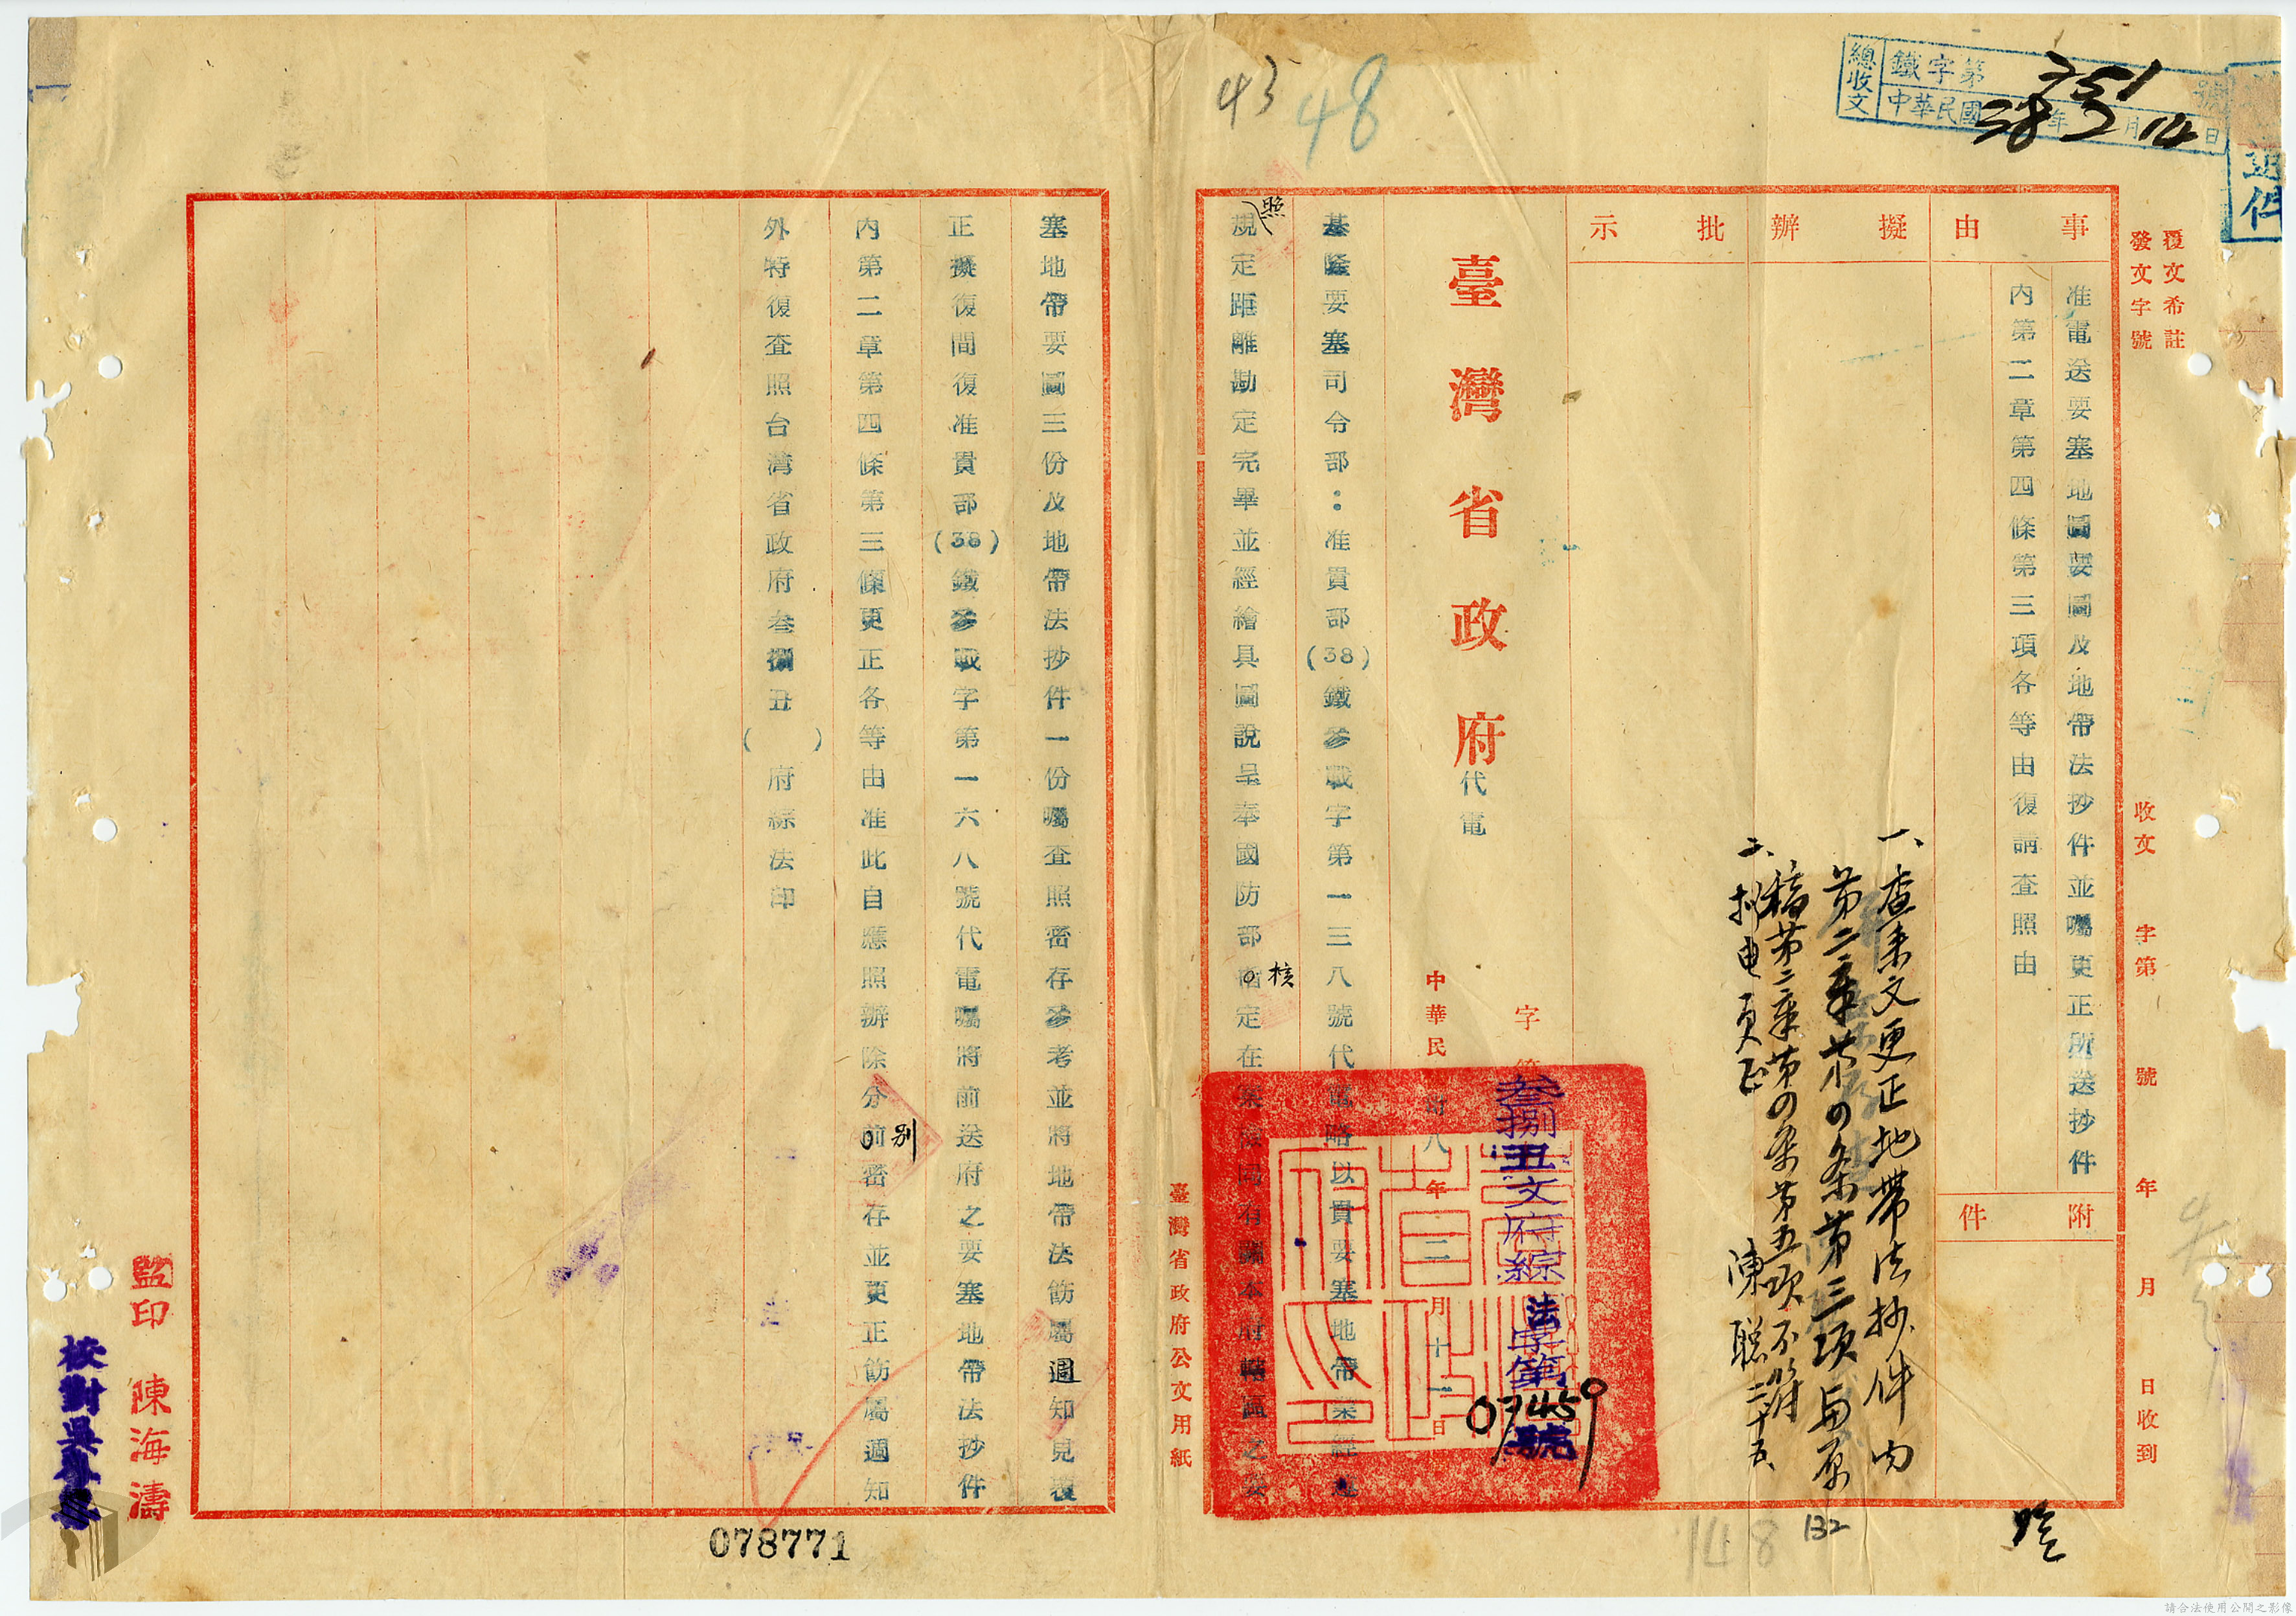 總收文
鐵字第351號
中華民國38年2月14日
43
48
覆文希註
發文字號
收文 字第 號 年 月 日收到
事由
准電送要塞地圖要圖及地帶法抄件並囑更正所送抄件
內第二章第四條第三項各等由復請查照由
附件
擬辦
批示
一、查来文更正地帶法抄件内
第二章第四条第三項与原
稿第二章第四条第五項不符
二、拟电更正
陳聡
臺灣省政府代電
字第
叁捌丑文府綜法字第07459號
中華民國卅八年二月十一日
基隆要塞司令部：准貴部(38)鐵參戰字第一三八號代電略以貴要塞地帶業經遵
照
規定距離勘定完畢並經繪具圖說呈奉國防部核定在案
塞地帶要圖三份及地帶法抄件一份囑查照密存參考並將地帶法飭屬週知見覆
正擬復間復准貴部(38)鐵參戰字第一六八號代電囑將前送府之要塞地帶法抄件
內第二章第四條第三條更正各等由准此自應照辦除分別密存並更正飭屬週知
外特復查照台灣省政府叁捌丑( )府綜法印
臺灣省政府公文用紙
監印 陳海濤
校對吳
078771
148
132
請合法使用公開之影像